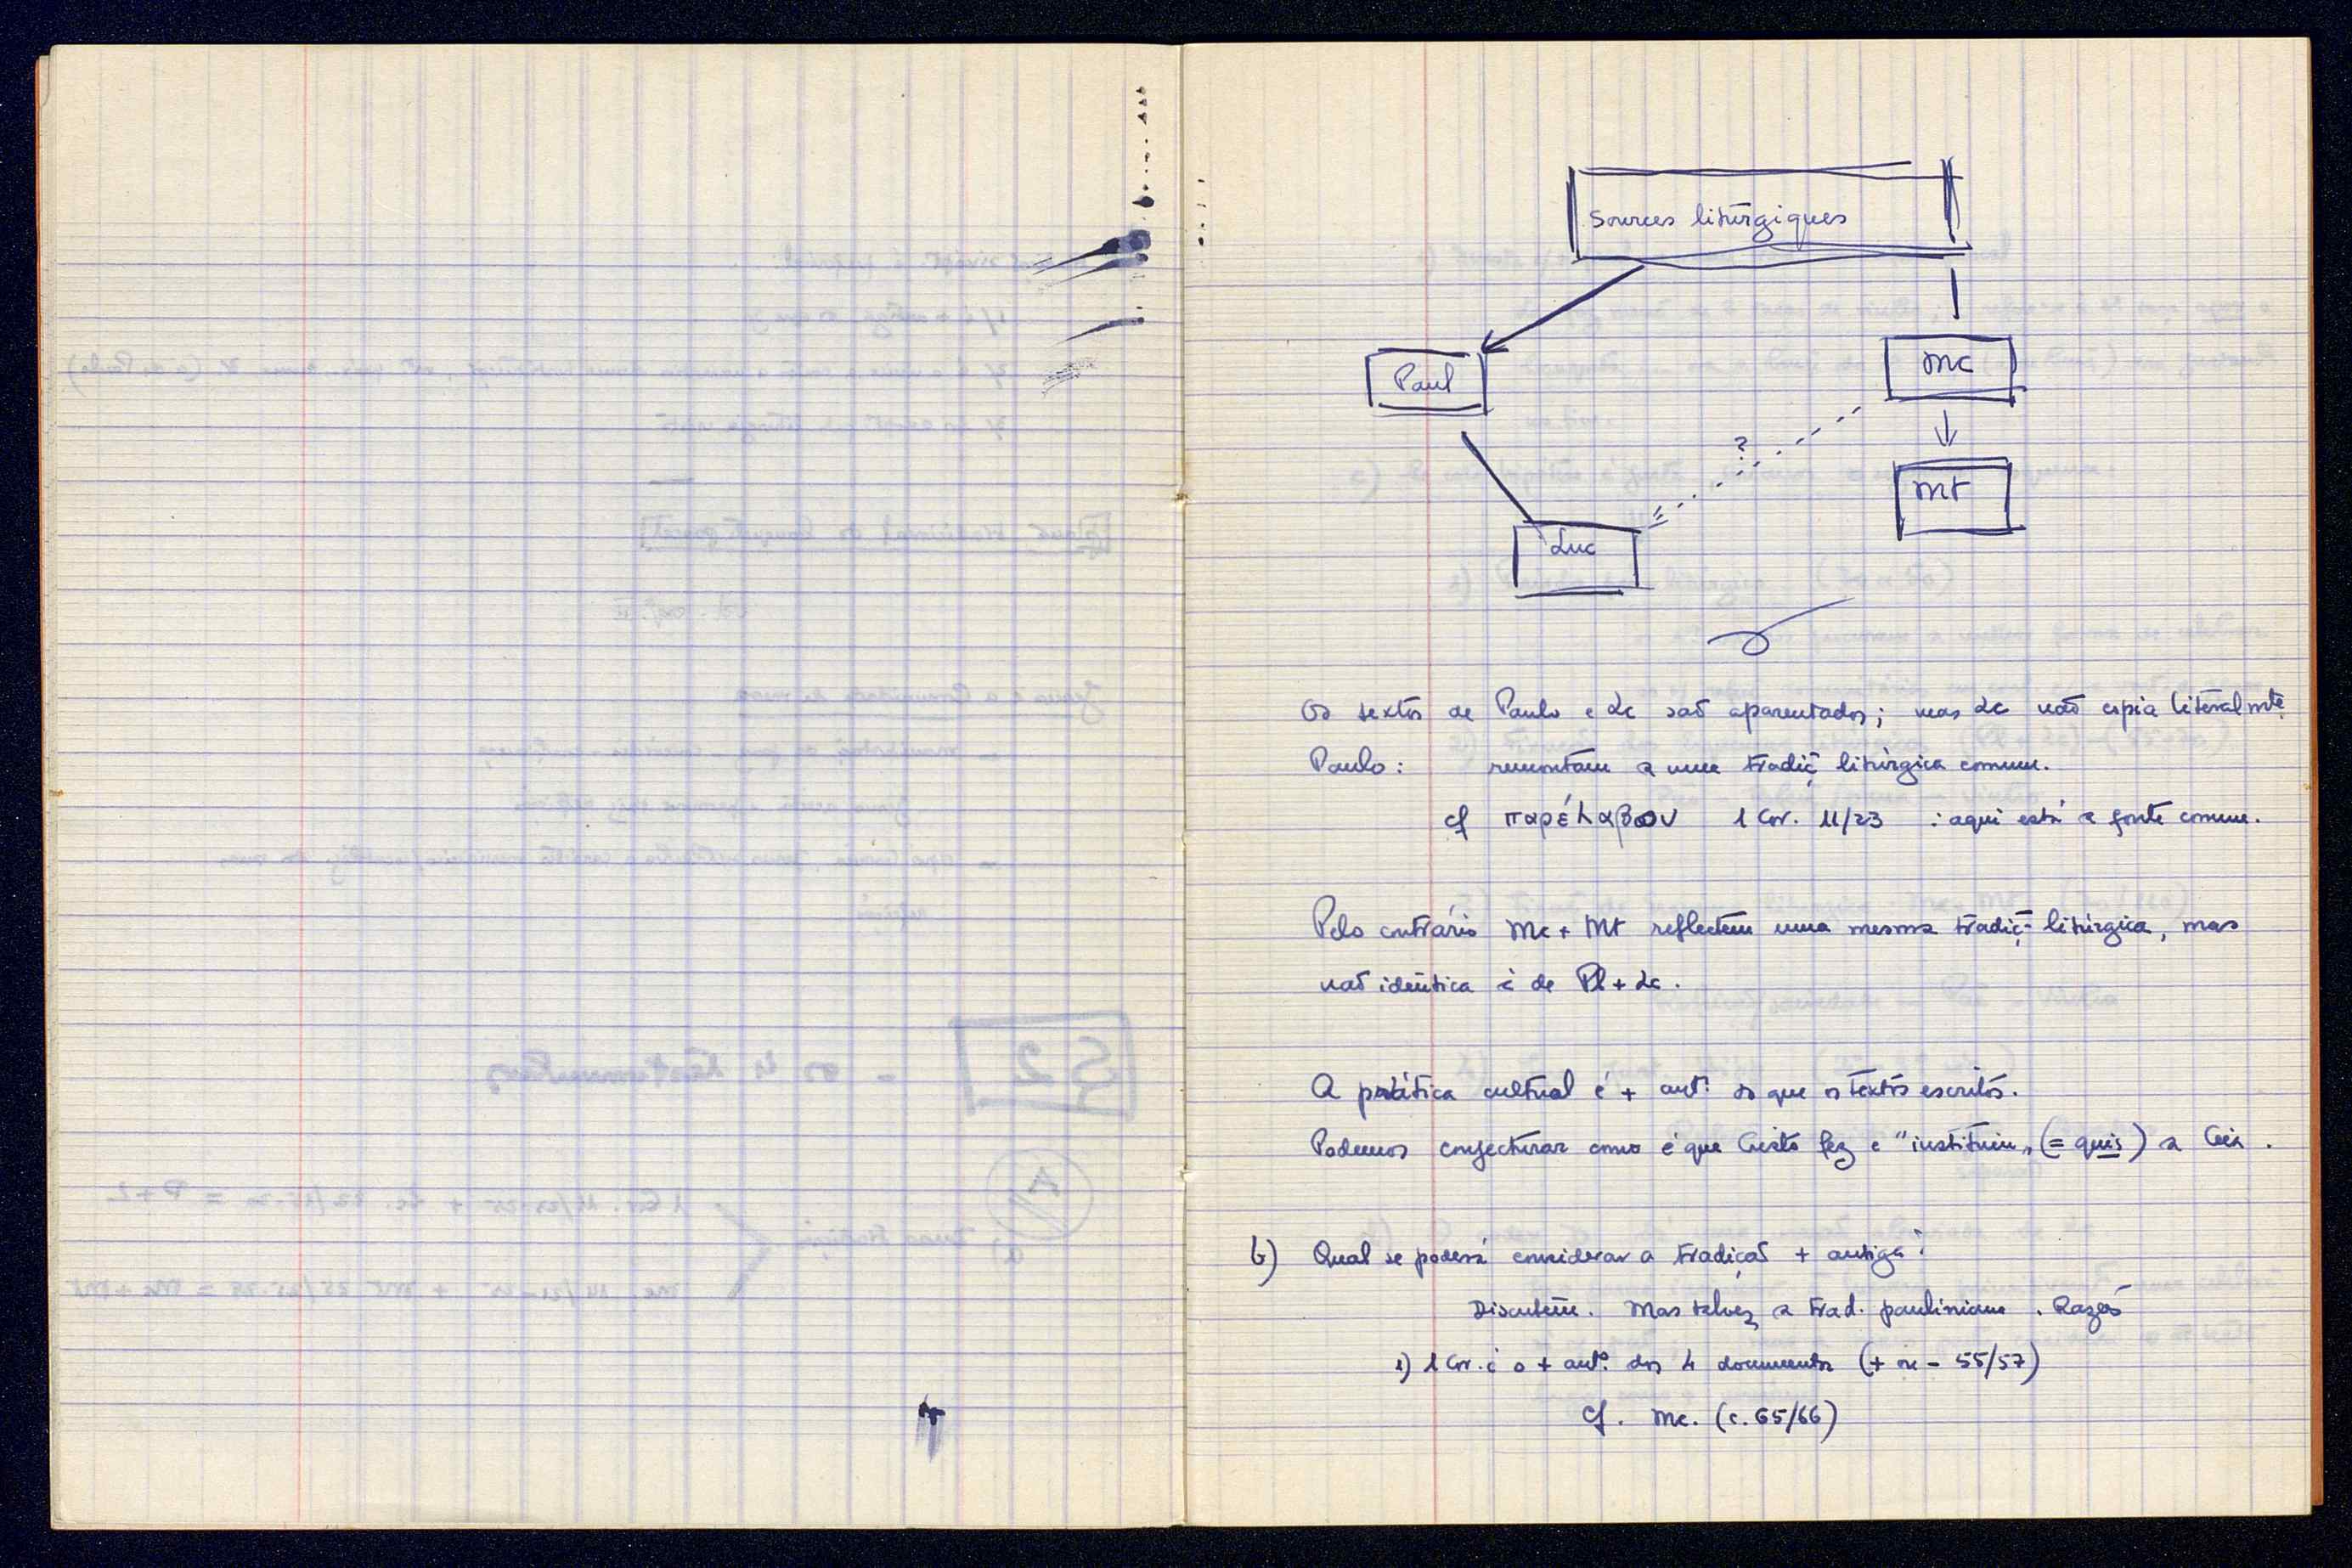 Sources liturgiques
Paul
Mc
?
Mt
Luc
Os textos de Paulo e Lc são aparentados; mas Lc não copia literalmte
Paulo: remontam a uma tradiç. litúrgica comum.
cf παρέλαβον 1 Cor. 11/23 : aqui está a fonte comum.
Pelo contrário Mc + Mt reflectem uma mesma tradiç. litúrgica, mas
não idêntica à de Pl + Lc.
A prática cultual é + antº do que os textos escritos.
Podemos conjecturar como é que Cristo fez e "instituiu" (= quis) a Ceia.
b) Qual se poderá considerar a tradição + antiga?
Discutem. Mas talvez a trad. pauliniana. Razões
1) 1 Cor. é o + antº. dos 4 documentos (+ ou - 55/57)
Cf. Mc. (c. 65/66)